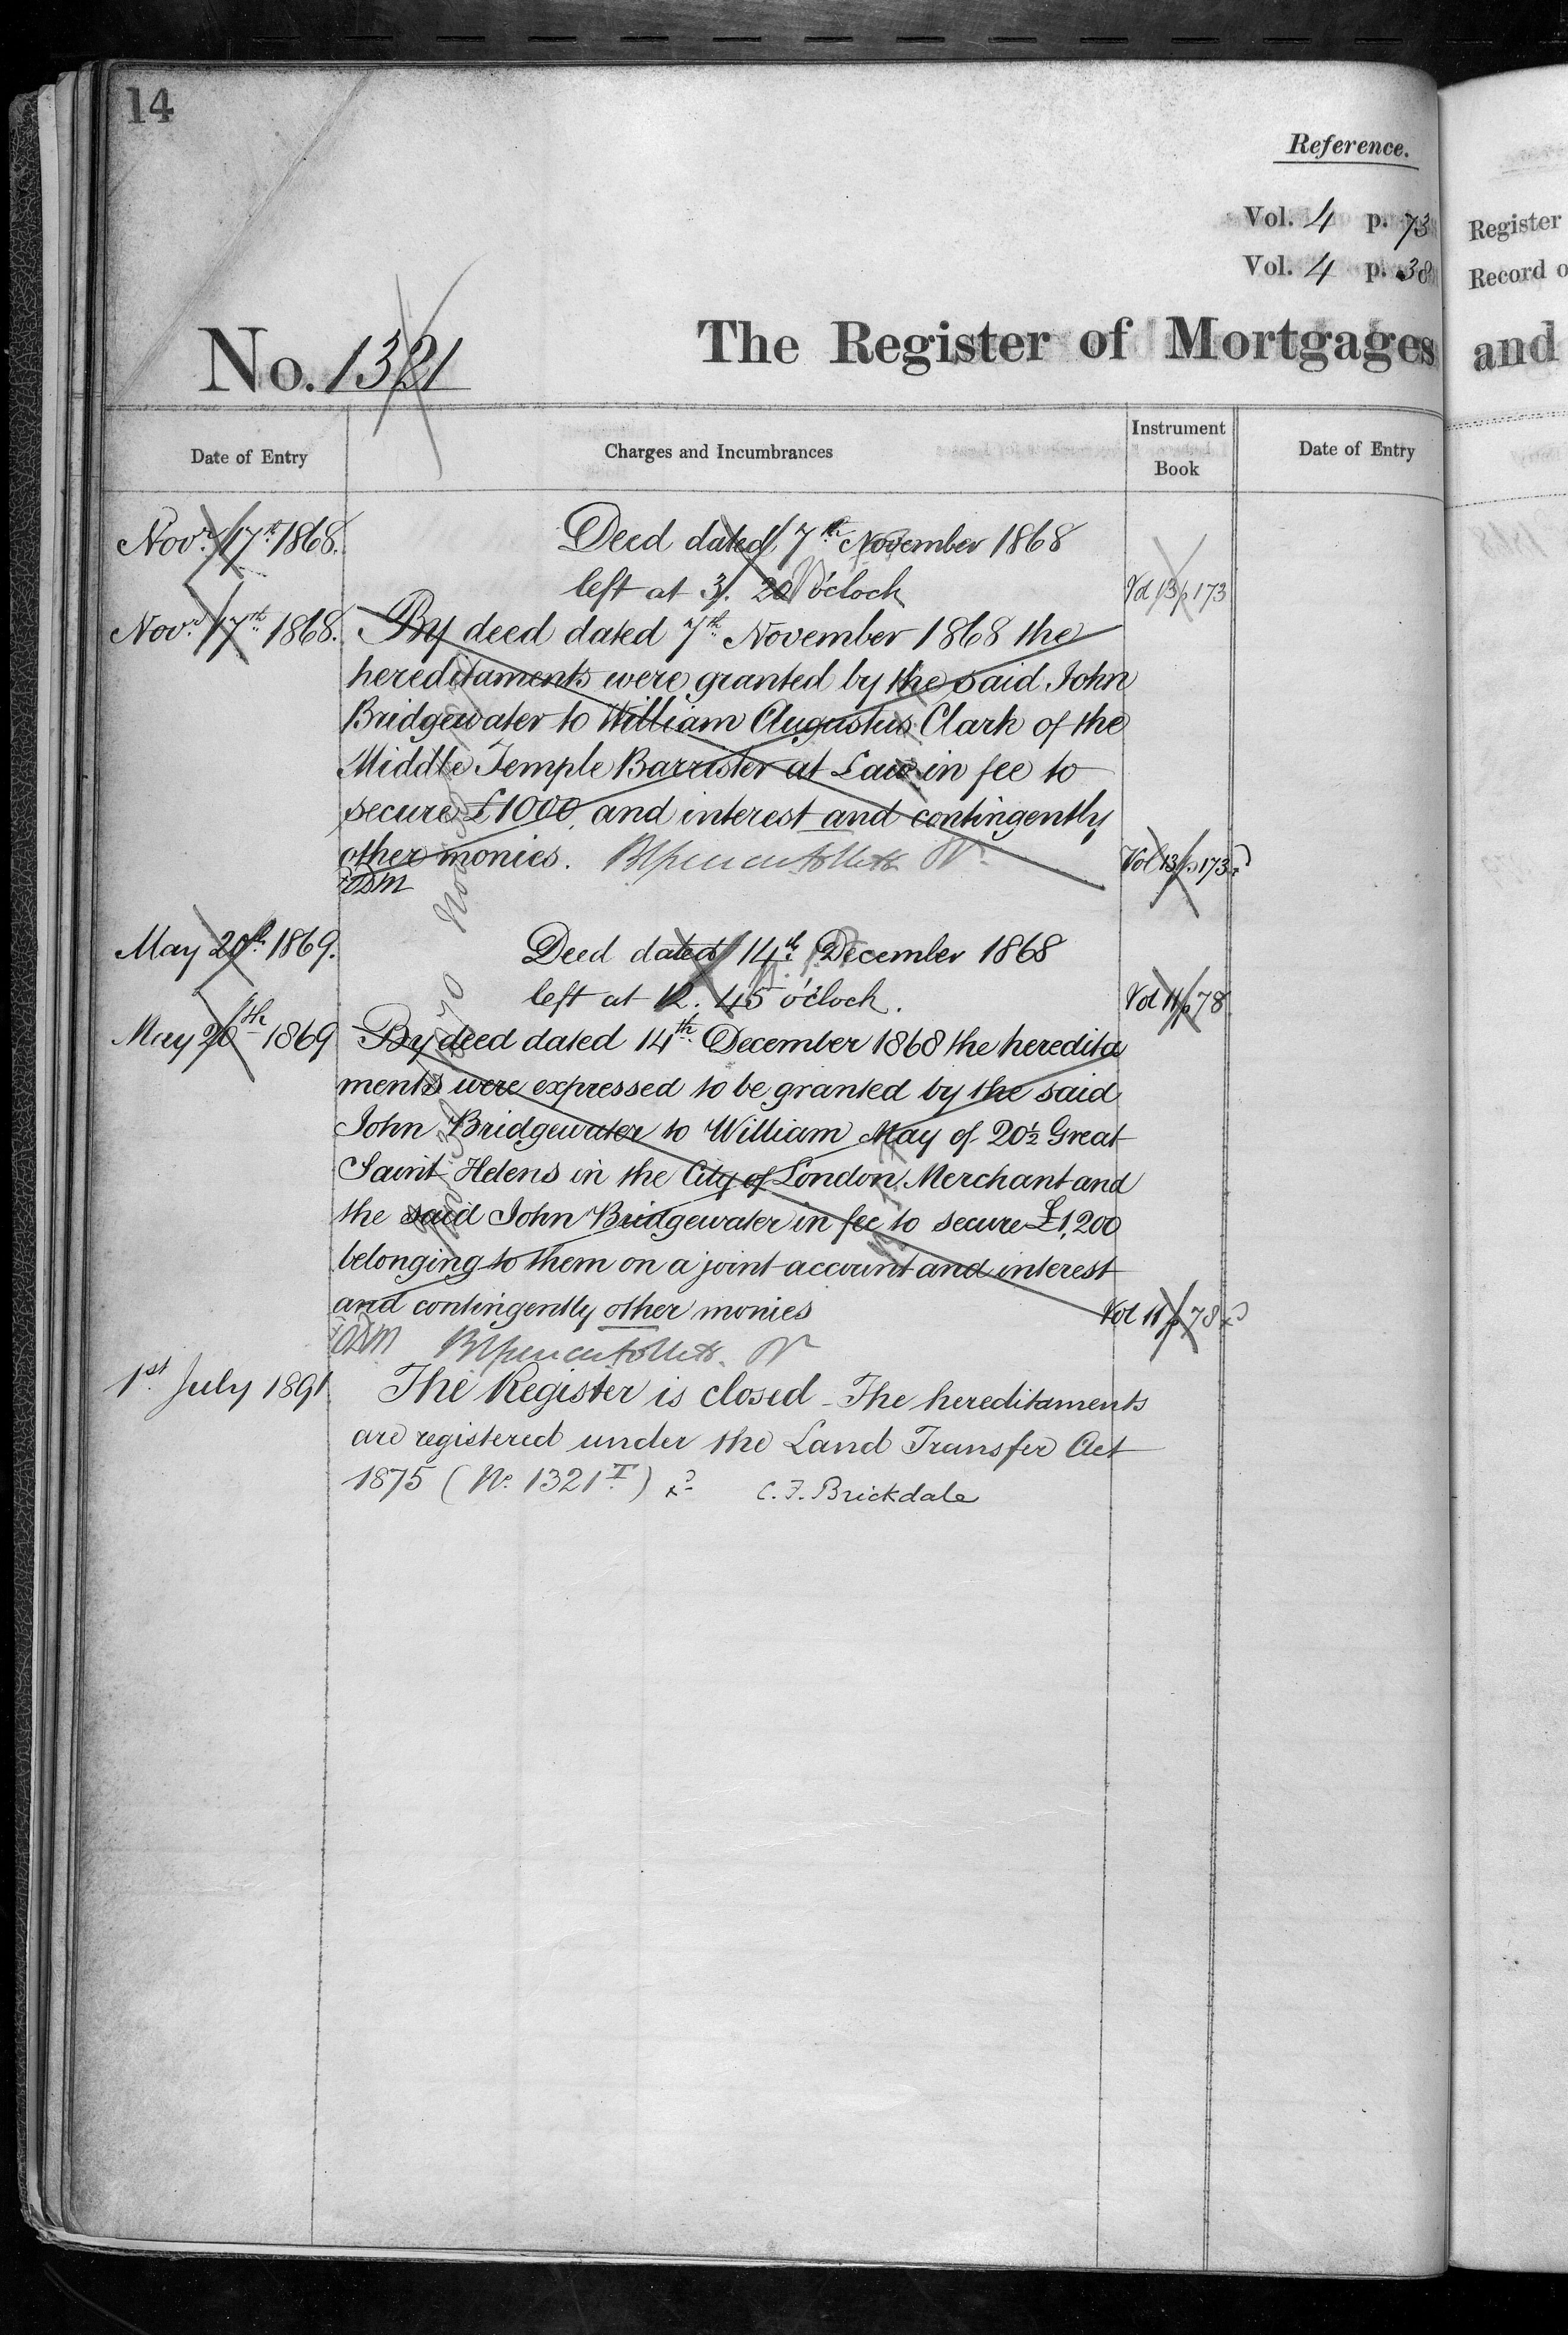 14
Reference.
Vol. 4 p. 73
Vol. 4 p. 38
No. 1321
The Register of Mortgages
Date of Entry
Charges and Incumbrances
Instrument Book
Date of Entry
Nov.r 17th 1868.
Deed dated 7th November 1868
left at 3. 20 o'clock
Vol 13 p 173
Nov.r 17th 1868.
By deed dated 7th November 1868 the
hereditaments were granted by the said John
Bridgewater to William Augustus Clark of the
Middle Temple Barrister at Law in fee to
secure £1000 and interest and contingently
other monies.
Vol 13 p 173
May 20th 1869.
Deed dated 14th December 1868
left at 12. 45 o'clock.
Vol 11 p 78
May 20th 1869
By deed dated 14th December 1868 the heredita
ments were expressed to be granted by the said
John Bridgewater to William May of 20½ Great
Saint Helens in the City of London Merchant and
the said John Bridgewater in fee to secure £1,200
belonging to them on a joint account and interest
and contingently other monies
Vol 11 p 78
1st July 1891
The Register is closed - The hereditaments
are registered under the Land Transfer Act
1875 (No. 1321 T)
C. F. Brickdale
Register
Record o
and